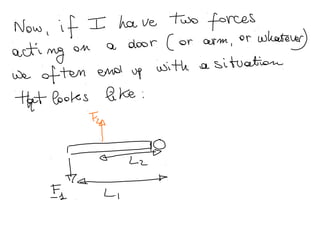 Now, if I have two forces
acting on a door (or arm, or whatever)
we often end up with a situation
that looks like:
F2
L2
F1
L1